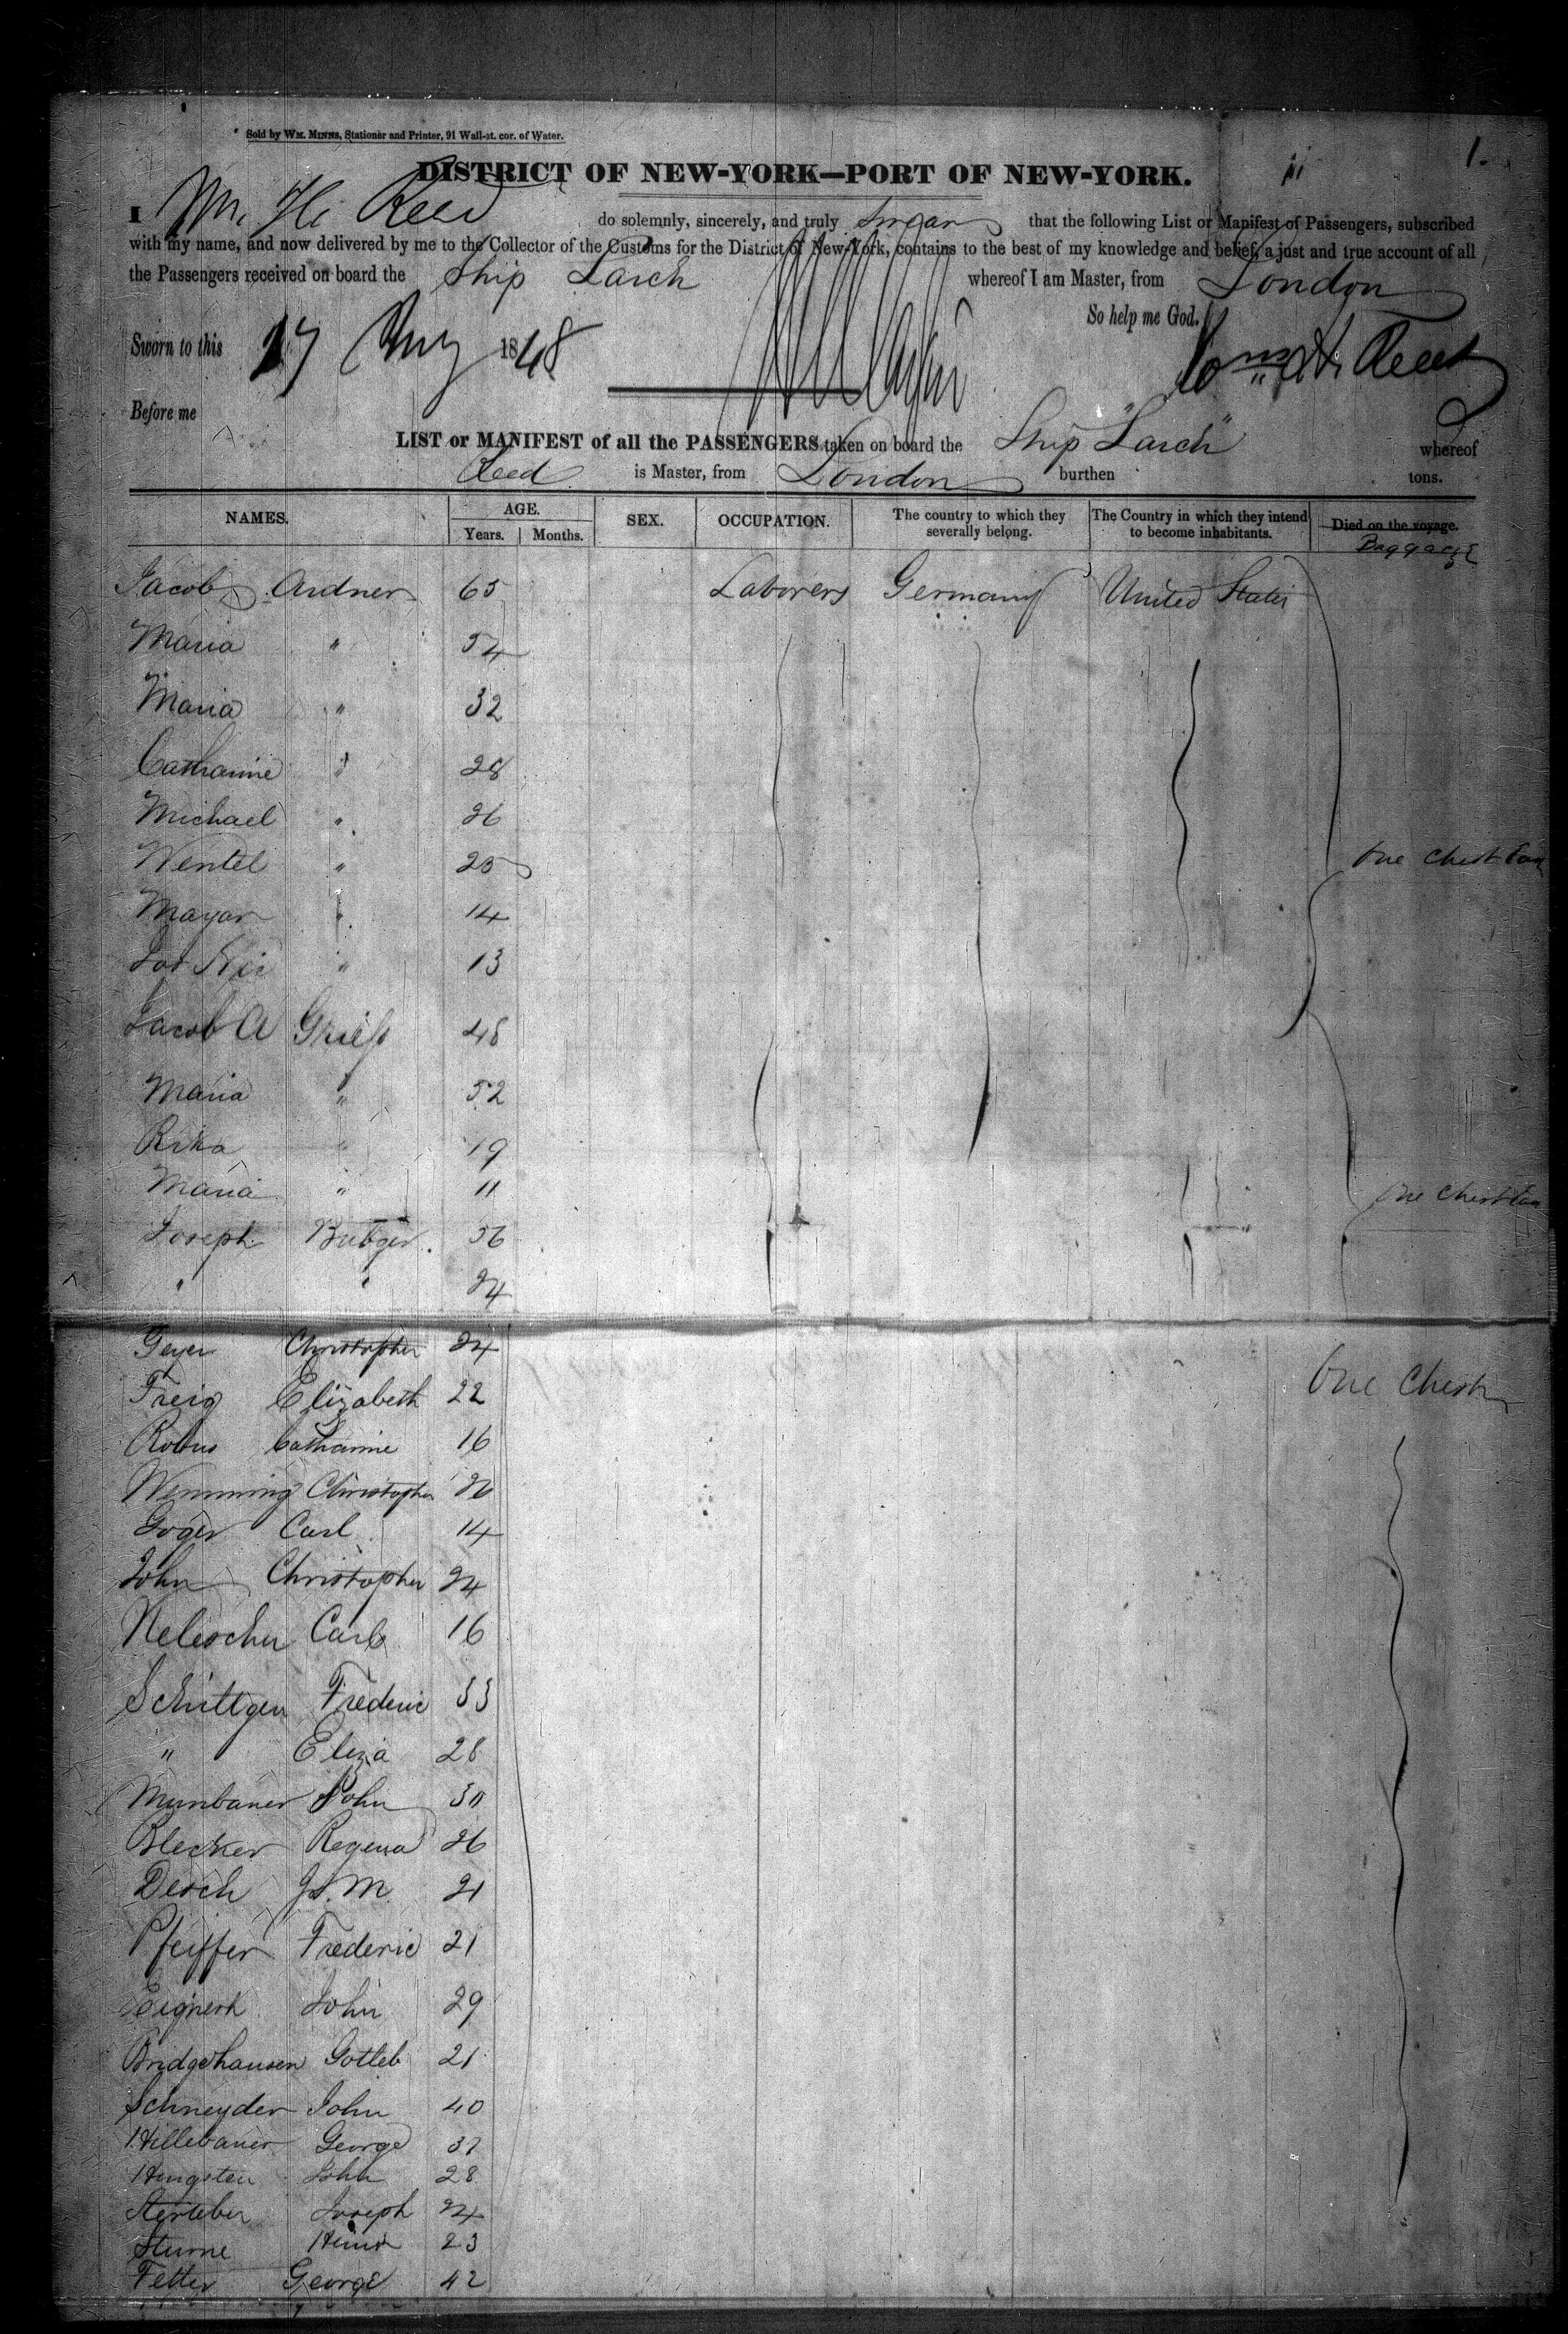 Sold by WM. MINNS, Stationer and Printer, 91 Wall-st. cor. of Water.
1.
DISTRICT OF NEW-YORK—PORT OF NEW-YORK.
I Wm. H. Reed do solemnly, sincerely, and truly Swear that the following List or Manifest of Passengers, subscribed
with my name, and now delivered by me to the Collector of the Customs for the District of New-York, contains to the best of my knowledge and belief, a just and true account of all
the Passengers received on board the Ship Larch whereof I am Master, from London
So help me God.
Sworn to this 17 Aug 1848 Wm. H. Reed
Before me
LIST or MANIFEST of all the PASSENGERS taken on board the Ship "Larch" whereof
Reed is Master, from London burthen tons.
NAMES. AGE. Years. Months. SEX. OCCUPATION. The country to which they severally belong. The Country in which they intend to become inhabitants. Died on the voyage. Baggage
Jacob Ardner 65 Laborers Germany United States
Maria " 54
Maria " 32
Catharine " 28
Michael " 26
Wentel " 25 One Chest
Mayar " 14
" 13
Jacob A 48
Maria " 52
Rika " 19
Maria " 11 One Chest
Joseph 56
" " 24
Geyer Christopher 24
Freig Elizabeth 22 One Chest
Catharine 16
Wemming Christopher
Goger Carl 14
John Christopher 24
Carl 16
Schittgen Frederic 33
" Eliza 28
Munbaner John 30
Blecker Regena 26
Desch M. 21
Pfeiffer Frederic 21
John 29
Bridgehausen Gotleb 21
Schneyder John 40
Hillebaner George 37
Hingsten John 28
Joseph 24
Sturne 23
Fetter George 42